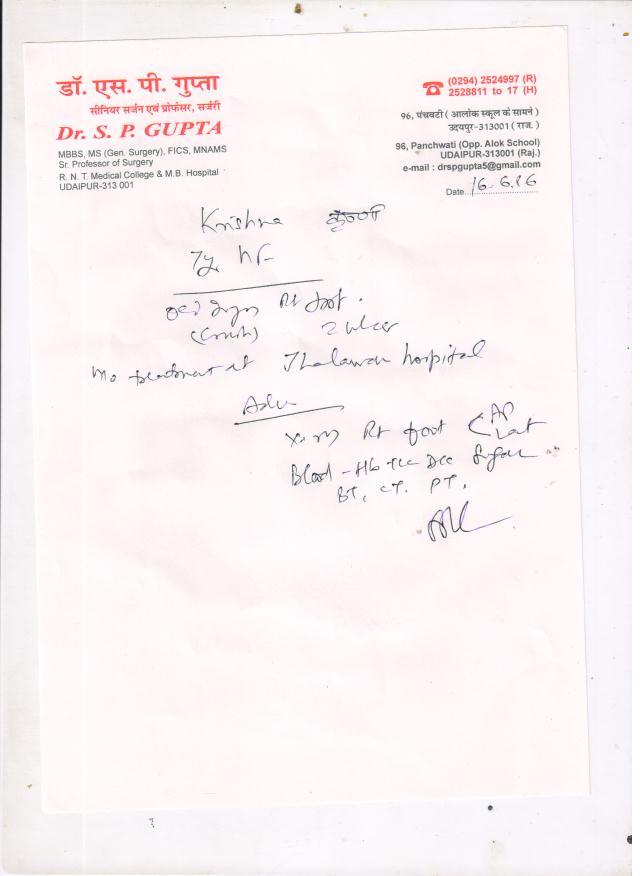 डॉ. एस. पी. गुप्ता
सीनियर सर्जन एवं प्रोफेसर, सर्जरी
Dr. S. P. GUPTA
MBBS, MS (Gen. Surgery), FICS, MNAMS
Sr. Professor of Surgery
R. N. T. Medical College & M.B. Hospital
UDAIPUR-313 001
(0294) 2524997 (R)
2528811 to 17 (H)
96, पंचवटी ( आलोक स्कूल के सामने )
उदयपुर-313001 ( राज. )
96, Panchwati (Opp. Alok School)
UDAIPUR-313001 (Raj.)
e-mail : drspgupta5@gmail.com
Date 16.6.86
Krishna
Rt foot.
(Crush) ulcer
treatment at Jhalawar hospital
Adv
Rt foot AP
Lat
Blood - Hb TLC DLC Sugar
BT, CT. PT.